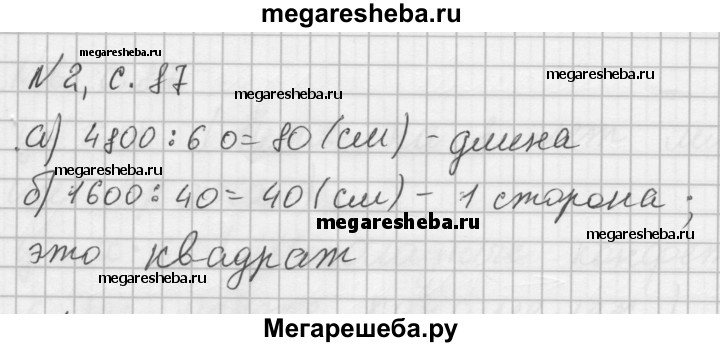 megaresheba.ru
megaresheba.ru
N 2, с. 87
megaresheba.ru
megaresheba.ru
а) 4800 : 60 = 80 (см) - длина
megaresheba.ru
б) 1600 : 40 = 40 (см) - 1 сторона;
megaresheba.ru
megaresheba.ru
это квадрат
megaresheba.ru
Мегарешеба.ру